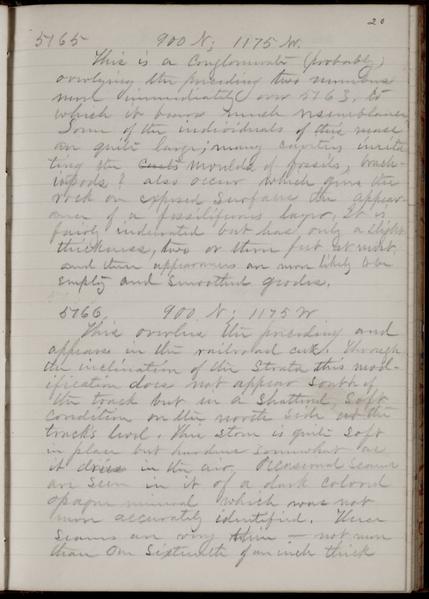 20
5765 900 N; 1175 W.
This is a Conglomerate (probably)
overlying the preceding two numbers
most immediately over 5763, to
which it bears much resemblance
Some of the individuals of this mass
are quite large; many cavities imita
ting the Casts moulds of fossils, brach-
iopods? also occur which gives the
rock on exposed surfaces the appear-
ance of a fossiliferous layer. It is
fairly indurated but has only a slight
thickness, two or three feet at most.
and these appearances are more likely to be
empty and smoothed geodes.
5766, 900 N; 1175 W
This overlies the preceding and
appears in the railroad cut. Through
the inclination of the Strata this mod-
ification does not appear South of
the track but in a Shattered, Soft
condition on the north side at the
track's level. This stone is quite soft
in place but hardens somewhat as
it dries in the air. Occasional seams
are seen in it of a dark colored
opaque mineral which was not
more accurately identified. These
seams are very thin — not more
than one sixteenth of an inch thick